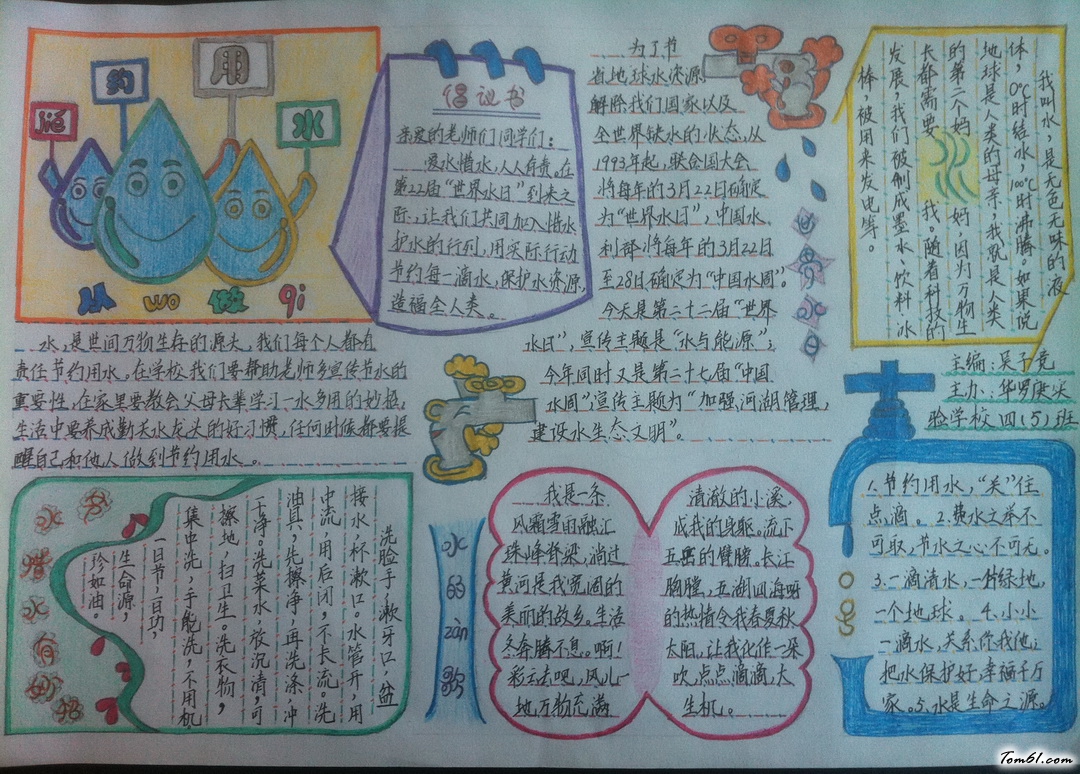 节
约
用
水
从 wo 做 qi
倡议书
亲爱的老师们同学们：
爱水惜水，人人有责。在
第22届“世界水日”到来之
际，让我们共同加入惜水
护水的行列，用实际行动
节约每一滴水，保护水资源，
造福全人类。
为了节
省地球水资源，
解除我们国家以及
全世界缺水的状态，从
1993年起，联合国大会
将每年的3月22日确定
为“世界水日”，中国水
利部将每年的3月22日
至28日确定为“中国水周”。
今天是第二十二届“世界
水日”，宣传主题是“水与能源”；
今年同时又是第二十七届“中国
水周”宣传主题为“加强河湖管理，
建设水生态文明”。
世
界
水
日
我叫水，是无色无味的液
体，0℃时结冰，100℃时沸腾，如果说
地球是人类的母亲，我就是人类
的第二个妈妈，因为万物生
长都需要我。随着科技的
发展，我们被制成墨水、饮料、冰
棒，被用来发电等。
主编：吴子竞
主办：华罗庚实
验学校四（5）班
水，是世间万物生存的源头，我们每个人都有
责任节约用水，在学校我们要帮助老师多宣传节水的
重要性，在家里要教会父母长辈学习一水多用的妙招，
生活中要养成勤关水龙头的好习惯，任何时候都要提
醒自己和他人做到节约用水。
水
惜
水
有
妙
招
洗脸手，漱牙口，盆
接水，杯漱口。水管开，用
中流，用后闭，不长流。洗
油具，先擦净，再洗涤，冲
干净。洗菜水，放沉清，可
擦地，扫卫生。洗衣物，
集中洗，手能洗，不用机
一日节，一日功，
生命源，
珍如油。
水
的
zàn
歌
我是一条
风霜雪雨融汇
珠峰脊梁，淌过
黄河是我宽阔的
美丽的故乡。生活
冬奔腾不息。啊！
彩云去吧，风儿一
地万物充满
清澈的小溪，
成我的身躯。流下
五岳的臂膀。长江
胸膛，五湖四海呀
的热情令我春夏秋
太阳，让我化作一朵
吹，点点滴滴，大
生机。
1.节约用水，“关”住
点滴。2.费水之举不
可取，节水之心不可无。
3.一滴清水，一片绿地，
一个地球。4.小小
一滴水，关系你我他；
把水保护好，幸福千万
家。5.水是生命之源。
Tom61.com